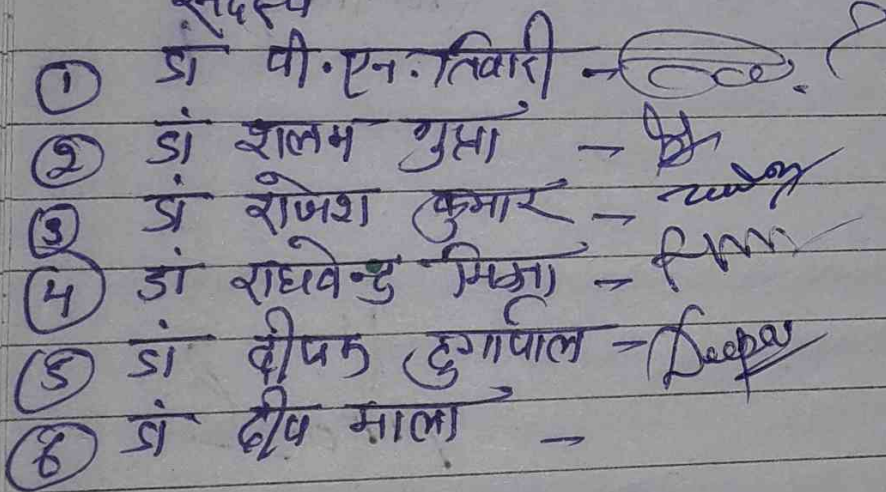 सदस्य
① डा पी.एन. तिवारी -
② डां शलभ गुप्ता -
③ डां राजेश कुमार -
④ डां राघवेन्द्र मिश्रा -
⑤ डां दीपक दुर्गापाल - Deepak
⑥ डां दीप माला -